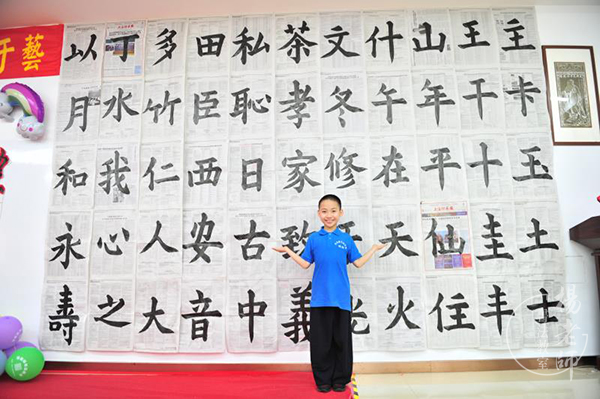 于藝
以丁多田私茶文什山王主
月水竹臣恥孝冬午年干卡
和我仁西日家修在平十玉
永心人安古致天仙圭土
壽之大音中義火住丰士
楊老師